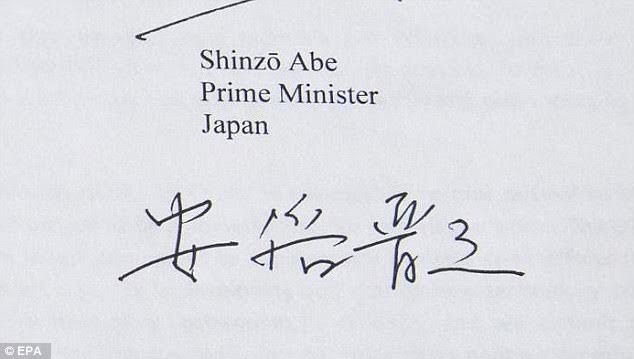 Shinzō Abe
Prime Minister
Japan
安倍晋三
© EPA